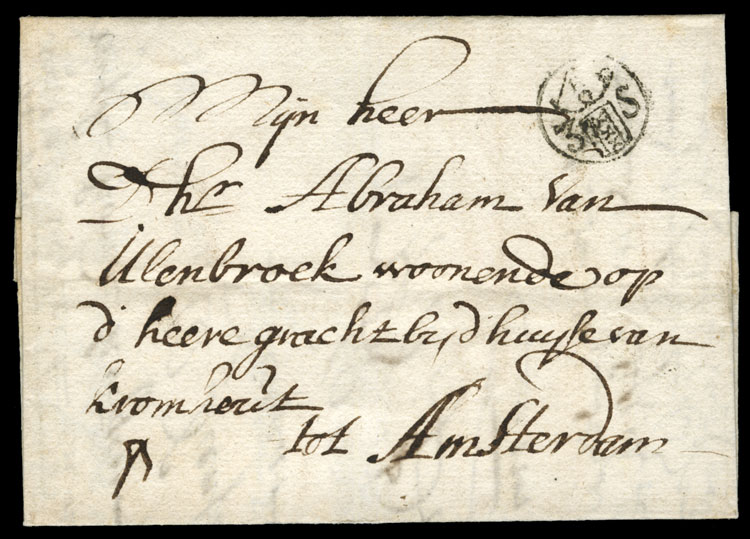 Mijn heer
D hr Abraham van
Ulenbroek woonende op
d' heere gracht by d'huysse van
kromhout
tot Amsterdam